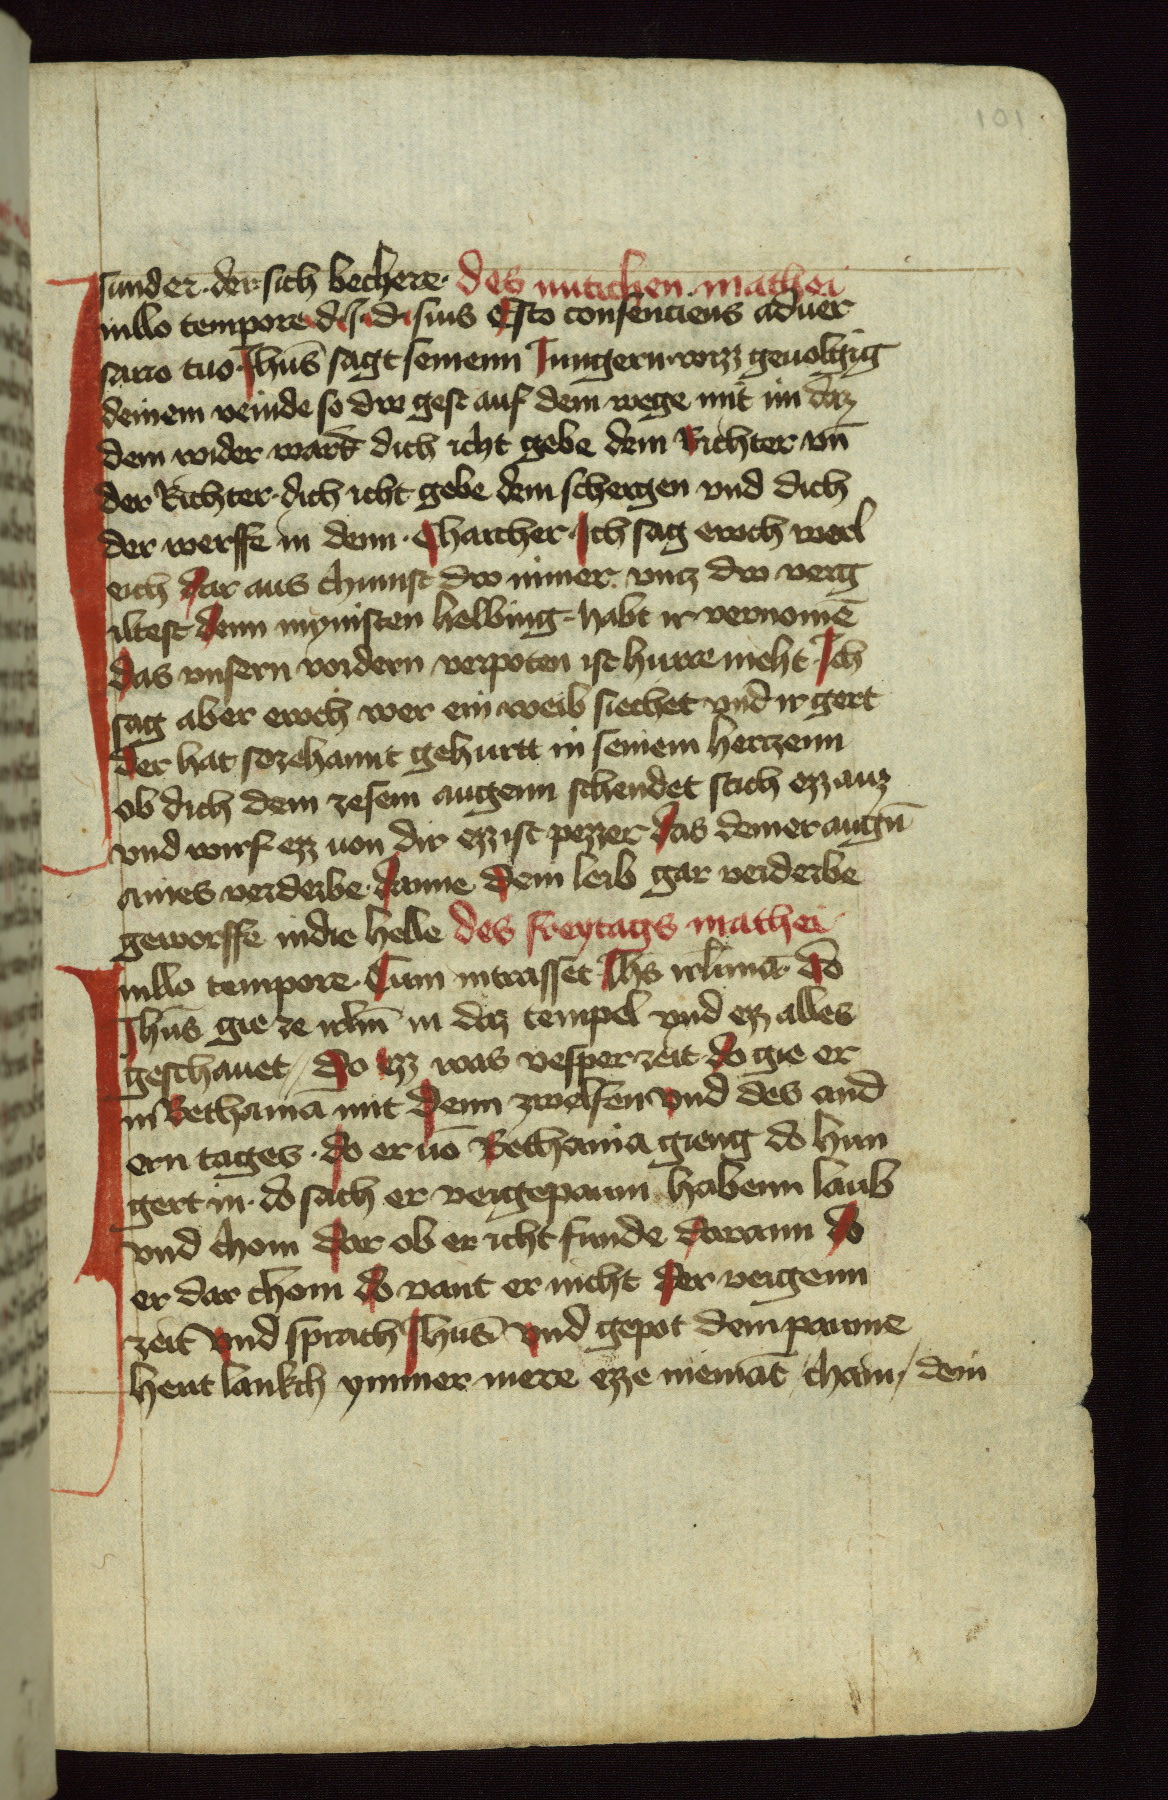 101
sunder · der sich bechere · des mitichen · mathei
Inillo tempore d · i · d · suis Esto consenciens aduer
sario tuo · Jhūs sagt seinenn Jungern wizz geuolgig
deinem veinde so dw gest auf dem wege mit im daz
dem wider wart dich icht gebe dem Richter vn̄
der Richter · dich icht gebe dem schergen vnd dich
der werffe in denn · Charcher · Ich sag ewch werl
eich dar aus chumst dw nimer vncz dw verg
iltest denn mynisten helbing · habt ir vernomē
das vnsern vordern verpoten ist hurre nicht · Ich
sag aber ewch wer ein weib siechet vnd ir gert
der hat sozehannt gehurtt in seinem herczenn
ob dich dem zesem augenn schendet stich ezz auz
vnd wirf ezz von dir ezz ist pezzer das deiner augn̄
aines verderbe · danne dein leib gar verderbe
geworffe indie helle des freytags mathei
Inillo tempore · Cum intrasset Jhs irl̄imā · do
Jhūs gie ze irl̄m̄ in daz tempel vnd ez alles
geschauet / do ez was vesper zeit · do gie er
in Bethaniā mit denn zwelfen vnd des and
ern tages · do er vō Bethania gieng do hun
gert in · do sach er veigepaum habenn laub
vnd chom dar ob er icht funde darann do
er dar chom do vant er nicht der veigenn
zeit vnd sprach Jhūs vnd gepot dem paume
hent lankch ymmer mere ezze niemāt / chain / dein